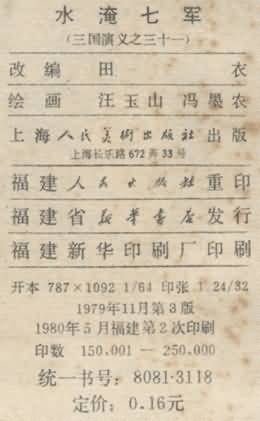 水淹七军
(三国演义之三十一)
改编 田衣
绘画 汪玉山 冯墨农
上海人民美術出版社出版
上海长乐路672弄33号
福建人民出版社重印
福建省新华書店发行
福建新华印刷厂印刷
开本 787×1092 1/64 印张 1 24/32
1979年11月第3版
1980年5月福建第2次印刷
印数 150.001—250.000
统一书号: 8081·3118
定价: 0.16元